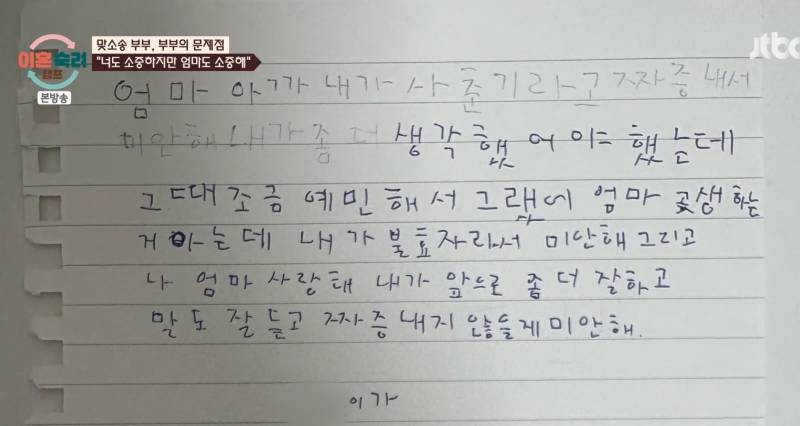 이혼 숙려 캠프
본방송
맞소송 부부, 부부의 문제점
"너도 소중하지만 엄마도 소중해"
jtbc
엄마 아까 내가 사춘기라고 짜증내서
미안해 내가 좀 더 생각했어야 했는데
그때 조금 예민해서 그랬에 엄마 곶생하는
거 아는데 내가 불표자라서 미안해 그리고
나 엄마 사랑해 내가 앞으로 좀 더 잘하고
말도 잘 듣고 짜증내지 않을게 미안해.
이가